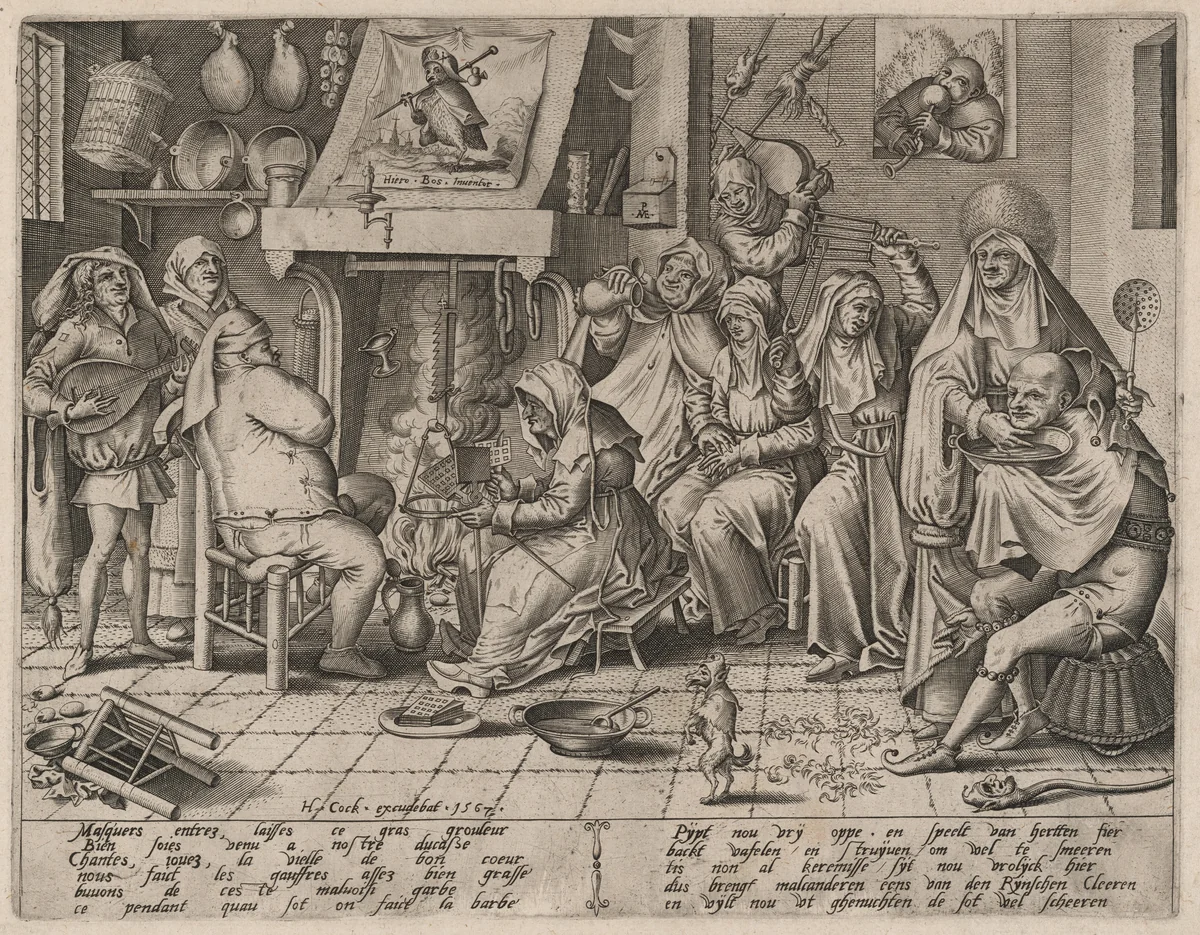 Hiero · Bos · Inventor ·
P
ME
H · Cock · excudebat · 1567 ·
Masquers entrez, laisses ce gras grouleur
Bien soies venu a nostre ducasse
Chantes, iouez, la vielle de bon coeur
nous faict les gauffres assez bien grasse
buuons de ceste maluoisi garbe
ce pendant quau sot on faict la barbe
Pÿpt nou vrÿ oppe · en speelt van hertten fier
backt vafelen en struÿuen om wel te smeeren
tis non al keremisse sÿt nou vrolÿck hier
dus brengt malcanderen eens van den Rÿnschen Cleeren
en wÿlt nou vt ghenuchten de sot wel scheeren